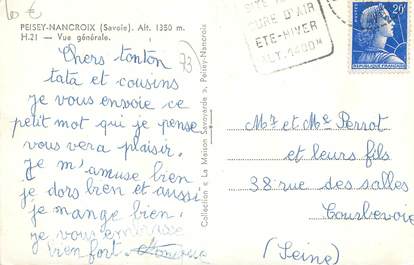 10 €
PEISEY-NANCROIX (Savoie). Alt. 1350 m.
H.21 — Vue générale.
73
Chers tonton
tata et cousins
je vous envoie ce
petit mot qui je pense
vous vera plaisir.
Je m'amuse bien
je dors bien et aussi
je mange bien.
je vous embrasse
bien fort.
Collection « La Maison Savoyarde », Peisey-Nancroix
CURE D'AIR
ETE-HIVER
ALT. 1400M
20F
REPUBLIQUE FRANCAISE
Mr et Me Perrot
et leurs fils
38 rue des salles
Courbevoie
(Seine)